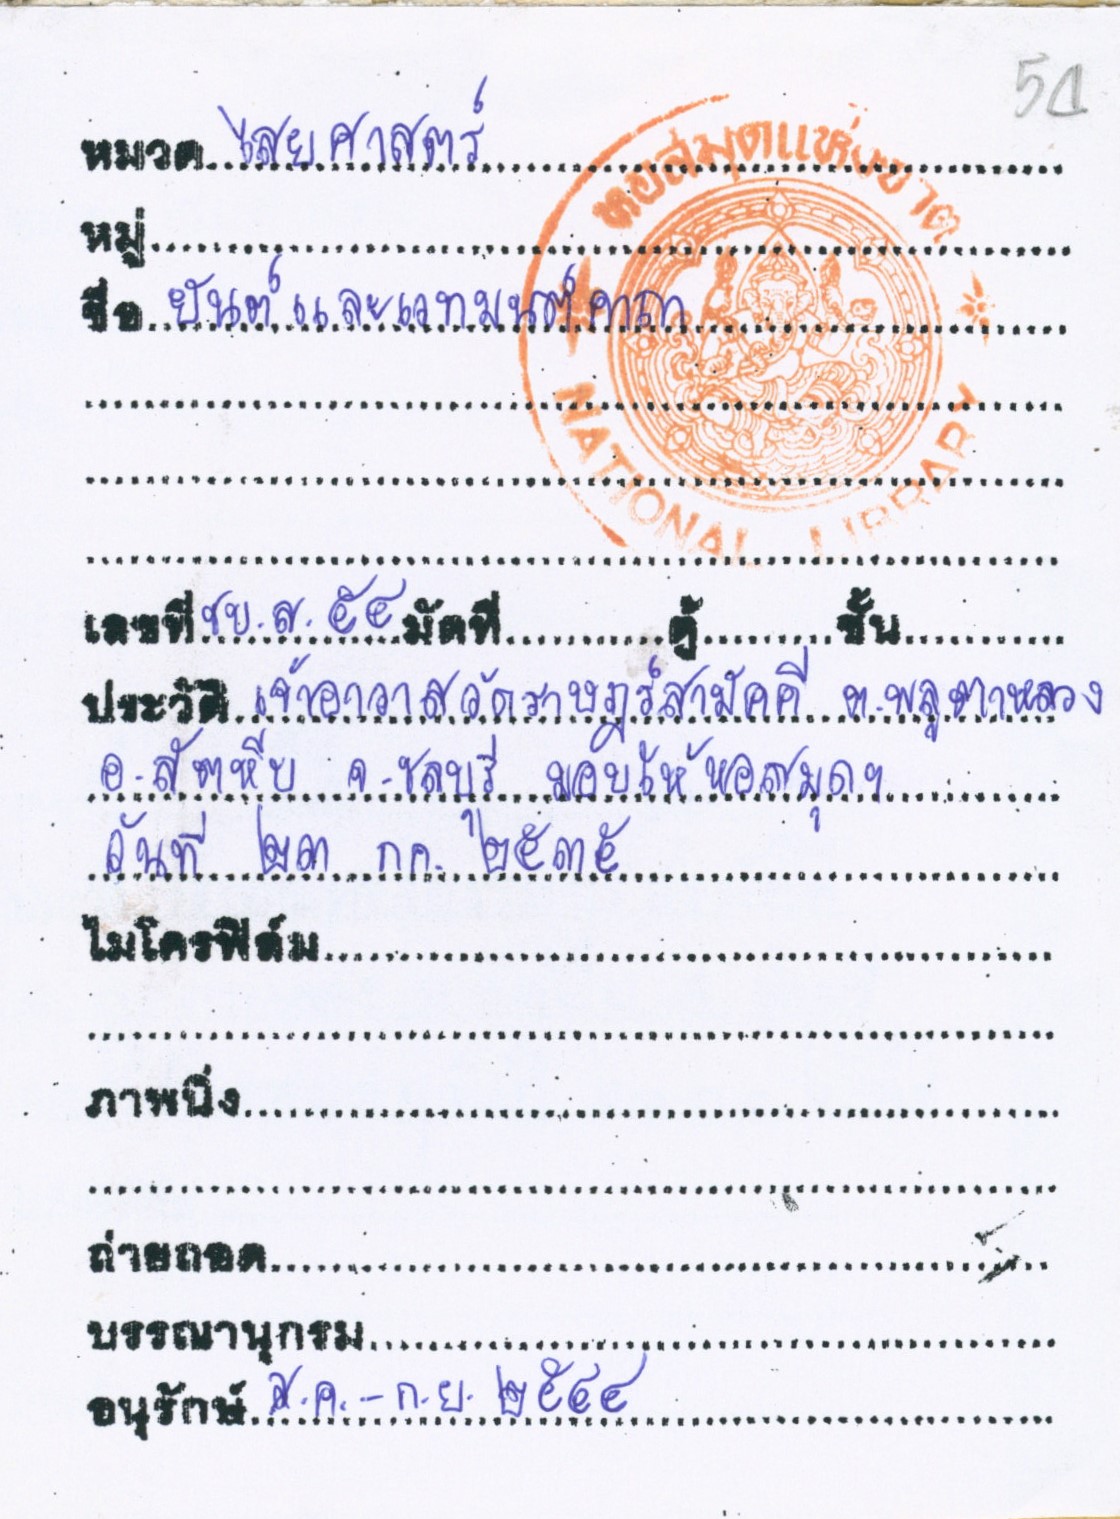 หมวด ไสยศาสตร์
หอสมุดแห่งชาติ
หมู่
ชื่อ ยันต์และเวทมนต์คาถา
NATIONAL LIBRARY
เลขที่ ชบ.ส. ๕๔ มัดที่ ตู้ ชั้น
ประวัติ เจ้าอาวาสวัดราษฎร์สามัคคี ต.พลูตาหลวง
อ.สัตหีบ จ.ชลบุรี มอบให้หอสมุดฯ
วันที่ ๒๓ กค. ๒๕๓๕
ไมโครฟิล์ม
ภาพนิ่ง
ถ่ายถอด
บรรณานุกรม
อนุรักษ์ ส.ค. - ก.ย. ๒๕๔๔